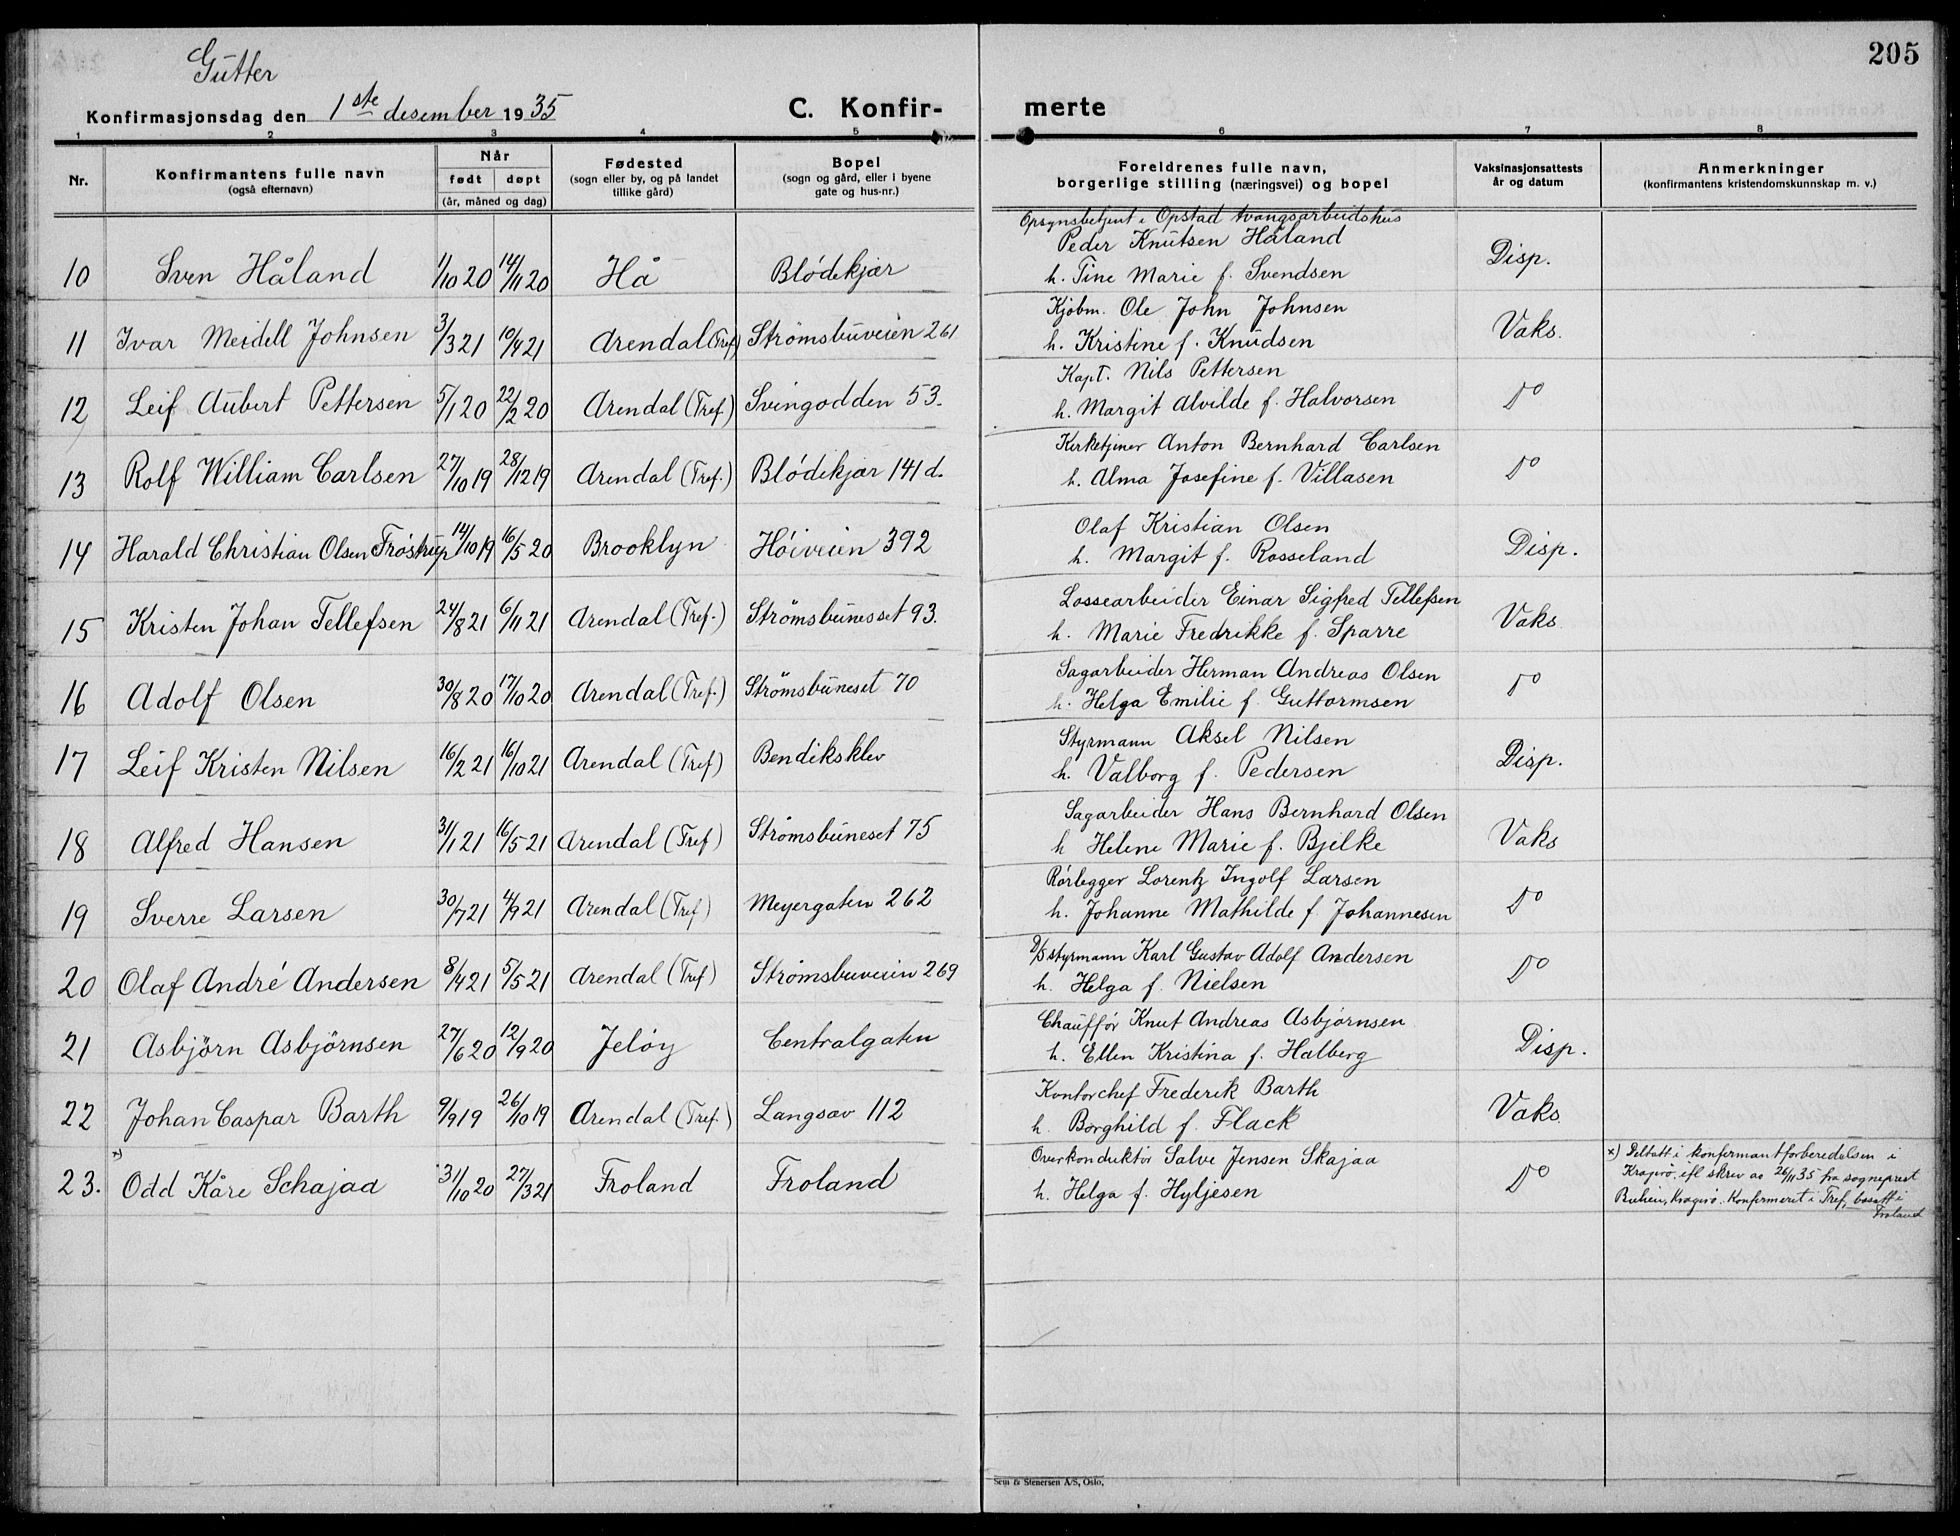 Gutter
205
Konfirmasjonsdag den 1ste desember 1935 C. Konfir- merte
1 2 3 4 5 6 7 8
Nr. Konfirmantens fulle navn (også efternavn) Når født døpt (år, måned og dag) Fødested (sogn eller by, og på landet tillike gård) Bopel (sogn og gård, eller i byene gate og hus-nr.) Foreldrenes fulle navn, borgerlige stilling (næringsvei) og bopel Vaksinasjonsattests år og datum Anmerkninger (konfirmantens kristendomskunnskap m. v.)
Opsynsbetjent i Opstad tvangsarbeidshus
Peder Knutsen Håland
10 Sven Håland 1/10 20 14/11 20 Hå Blödekjær h. Tine Marie f. Svendsen Disp.
Kjöbm. Ole John Johnsen
11 Ivar Meidell Johnsen 3/3 21 10/4 21 Arendal (Tref) Strömsbuveien 261 h. Kristine f. Knudsen Vaks.
Kapt. Nils Pettersen
12 Leif Aubert Pettersen 5/1 20 22/2 20 Arendal (Tref.) Svingodden 53. h. Margit Alvilde f. Halvorsen Do
Kirketjener Anton Bernhard Carlsen
13 Rolf William Carlsen 27/10 19 28/12 19 Arendal (Tref.) Blödekjær 141 d. h. Alma Josefine f. Villasen Do
Olaf Kristian Olsen
14 Harald Christian Olsen Fröstrup 14/10 19 16/5 20 Brooklyn Höiveien 392 h. Margit f. Rosseland Disp.
Lossearbeider Einar Sigfred Tellefsen
15 Kristen Johan Tellefsen 24/8 21 6/11 21 Arendal (Tref.) Strömsbunesset 93. h. Marie Fredrikke f. Sparre Vaks
Sagarbeider Herman Andreas Olsen
16 Adolf Olsen 30/8 20 17/10 20 Arendal (Tref.) Strömsbuneset 70 h. Helga Emilie f. Guttormsen Do
Styrmann Aksel Nilsen
17 Leif Kristen Nilsen 16/2 21 16/10 21 Arendal (Tref) Bendiksklev h. Valborg f. Pedersen Disp.
Sagarbeider Hans Bernhard Olsen
18 Alfred Hansen 31/1 21 16/5 21 Arendal (Tref) Strömsbuneset 75 h Helene Marie f. Bjelke Vaks
Rörlegger Lorentz Ingolf Larsen
19 Sverre Larsen 30/7 21 4/9 21 Arendal (Tref) Meyergaten 262 h. Johanne Mathilde f. Johannesen Do
D/S styrmann Karl Gustav Adolf Andersen
20 Olaf André Andersen 8/4 21 5/5 21 Arendal (Tref) Strömsbuveien 269 h. Helga f. Nielsen Do
Chauffør Knut Andreas Asbjørnsen
21 Asbjörn Asbjörnsen 27/6 20 12/9 20 Jelöy Centralgaten h. Ellen Kristina f. Halberg Disp.
Kontorchef Frederik Barth
22 Johan Caspar Barth 9/9 19 26/10 19 Arendal (Tref.) Langsæv 112 h. Borghild f. Flack Vaks
Overkonduktör Salve Jensen Skajaa
23. x) Odd Kåre Schajaa 31/10 20 27/3 21 Froland Froland h. Helga f. Hyljesen Do
x) Deltatt i konfirmantforberedelsen i
Kragerö, ifl skriv av 26/11 35 fra sogneprest
Kragerö. Konfirmeret i Tref, bosatt i
Froland
Sem & Stenersen A/S, Oslo.